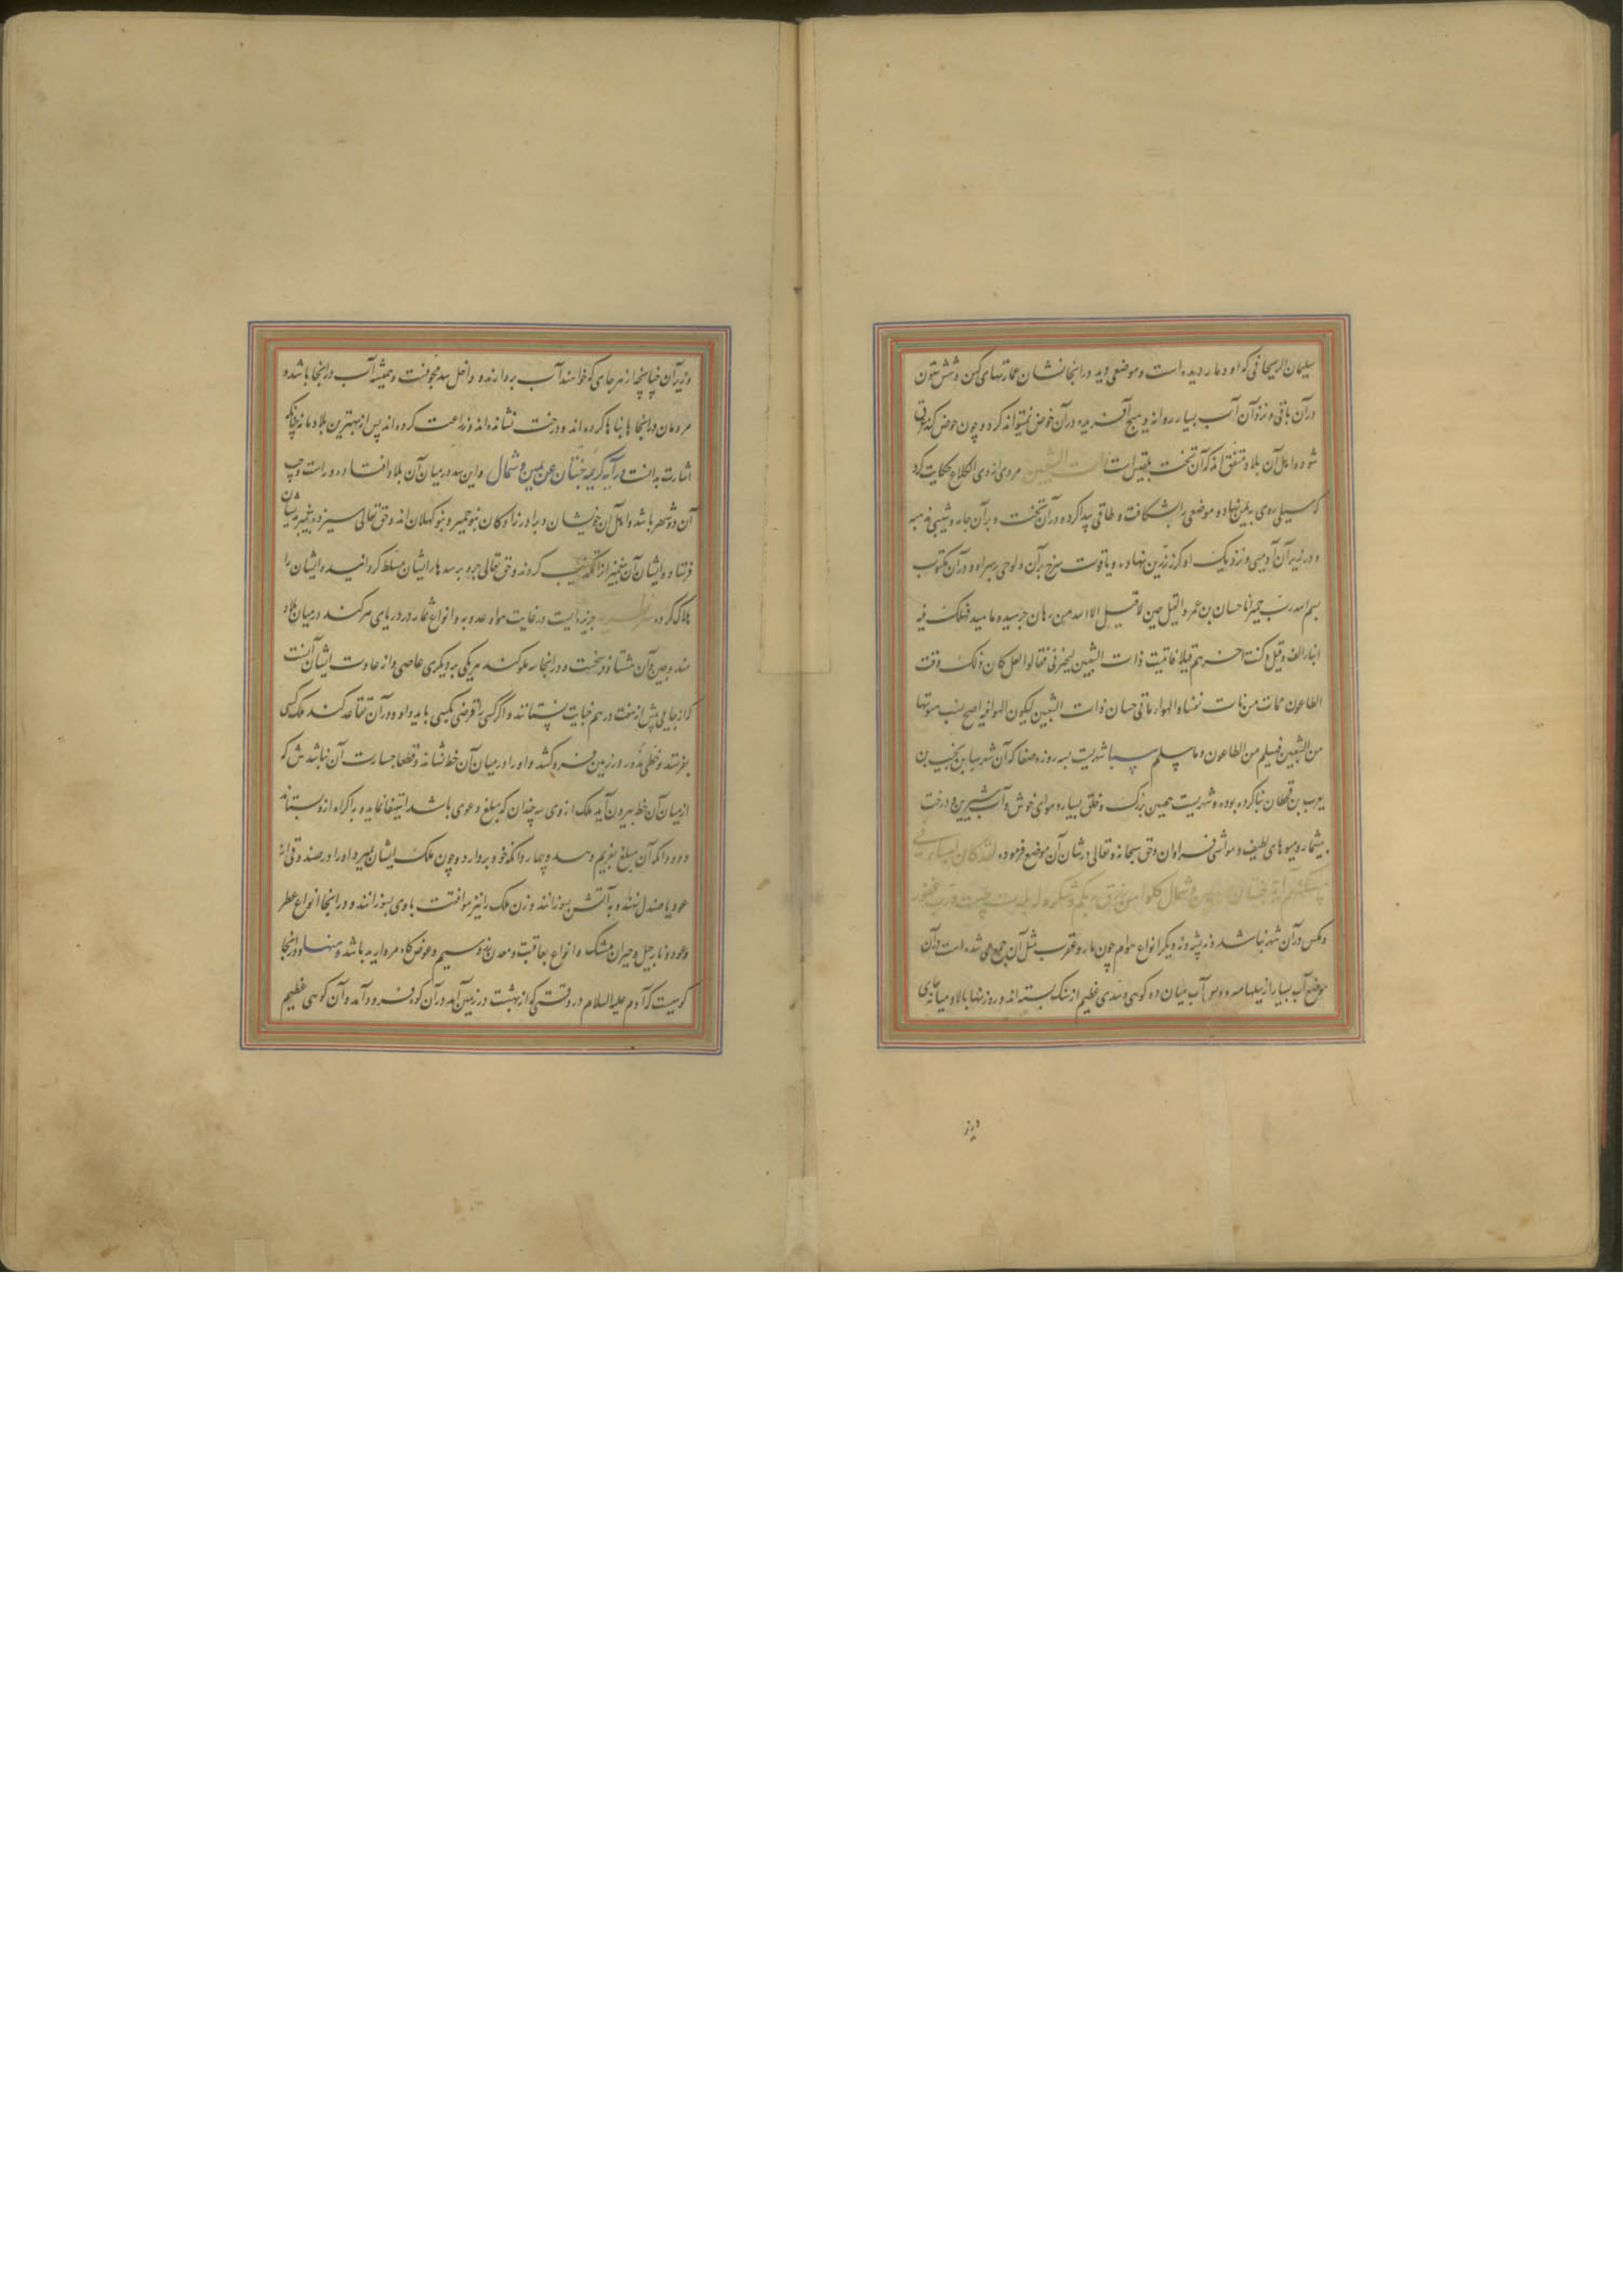 سلیمان الریحانی که او دمار دیده است و موضعی دید در انجا نشان عمارتهای کهن و شش ستون
در آن باقی و نزد آن آب بسیار روانه و هیچ آفریده در آن خوض نمیتواند کرد و چون خوض کند غرق
شود و اهل آن بلاد متفق اند که آن تخت بلقیس است ذات الشعبین مردی از ذی الکلاع حکایت کرد
که سیلی روی بیمن نهاد و موضعی را بشکافت و طاقی پیدا کرد و در آن تخت و بر آن
و در زیر آن آدمیی و نزدیک او کرز زرین نهاده و یاقوت سرخ بر آن و لوحی بر سر او و در آن مکتوب
بسم الله رب حمیر انا حسان بن عمرو القیل حین لا قیل الا الله من هلک فیه
اثنا الف قیل و کنت اخرهم قیلا فاتیت ذات الشعبین لیجیرنی فقالوا لعل کان ذلک وقت
الطاعون فمات من مات ذات الشعبین لیکون الهوا فیه اصح
من الشعبین فیسلم من الطاعون و ما یسلم سبا شهریست بسه روزه صنعا که آن شهر سبا بن یشجب بن
یعرب بن قحطان بنا کرده بوده و شهریست حصین بزرک و خلق بسیار و هوای خوش و آب شیرین و درخت
بیشمار و میوهای لطیف و مواشی فراوان و حق سبحانه و تعالی در شان آن موضع فرموده لقد کان لسبا فی
مسکنهم آیة جنتان عن یمین و شمال کلوا من رزق ربکم و اشکروا له بلدة طیبة و رب غفور
و مکس در آن شهر نباشد و نه پشه و نه دیگر انواع هوام چون مار و عقرب مثل آن جمع می شده است در آن
موضع آب بسیار از سیلها آب میان دو کوهی و سدی عظیم از سنک بسته اند و روزنها بالا و میانه جای
وزیر آن چنانچه از هر جای که خواهند آب بردارند و داخل سد مجوفست و همیشه آب در انجا باشد و
مردمان در انجا بناها کرده اند و درخت نشانده اند و زراعت کرده اند پس از بهترین بلاد ماند چنانکه
اشارت بدانست در آیه کریمه جنتان عن یمین و شمال و این سد در میان آن بلاد افتاده و راست و چپ
آن دو شهر باشد و اهل آن خویشان و برادر زادکان بنو حمیر و بنو کهلان اند و حق تعالی سیزده پیغمبر بدیشان
فرستاد و ایشان آن پیغمبران را تکذیب کردند و حق تعالی جرد بر سدها را بریشان مسلط کردانید و ایشان را
هلاک کرد سرندیب جزیره ایست در غایت هوا و عذوبه و انواع عمار در دریای هرکند در میان بلاد
هند و چین و آن هشتاد فرسخست و در انجا سه ملوکند هر یکی بر دیکری عاصی و از عادت ایشان آنست
که از جایی پیش از هفت درهم خیانت نستانند و اگر کسی را قرضی بکسی باید داد و در آن تقاعد کند ملک کسی
بفرستد و خطی مدور در زمین فرو کشد و او را در میان آن خط نشاند و قطعا جسارت آن نباشدش که
از میان آن خط بیرون آید ملک از وی سه چندان که مبلغ دعوی باشد استیفا نماید و به اکراه از و بستاند
و دو دانکه آن مبلغ بغریم دهد و چهار دانکه خود بردارد و چون ملک ایشان بمیرد او را در صندوقی از
عود یا صندل نهند و به آتش بسوزانند و زن ملک را نیز موافقت با وی بسوزانند و در انجا انواع عطر
و عود و نارجیل و حیران مشک و انواع یواقیت و معدن زر و سیم و عوض کاه مروارید باشد و منها و در انجا
کوهیست که آدم علیه السلام در وقتی که از بهشت در زمین آمد در آن کوه فرود آمد و آن کوهی عظیم
وزیر